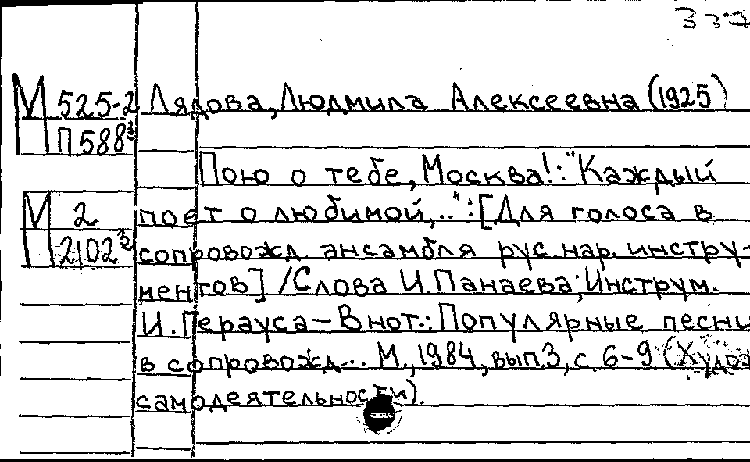 337
М 525-2 Лядова, Людмила Алексеевна (1925)
П 588
Пою о тебе, Москва!: "Каждый
М 2 поет о любимой,..": [Для голоса в
П 2102 сопровожд. ансамбля рус. нар. инстру-
ментов] / Слова И. Панаева; Инструм.
И. Герауса – В нот.: Популярные песни
в сопровожд... М., 1984, вып. 3, с. 6-9 (Худож
самодеятельности).